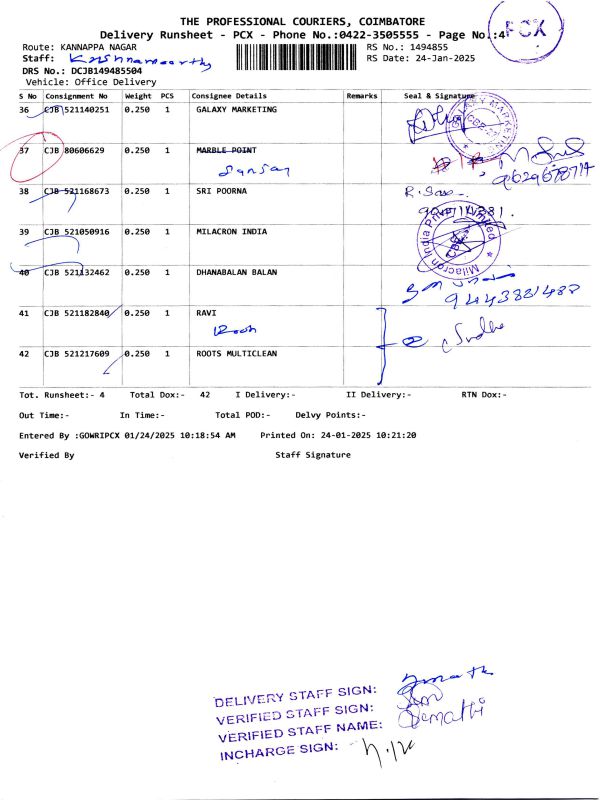 THE PROFESSIONAL COURIERS, COIMBATORE
Delivery Runsheet - PCX - Phone No.:0422-3505555 - Page No.:4
PCX
Route: KANNAPPA NAGAR
RS No.: 1494855
Staff: Krishnamoorthy
RS Date: 24-Jan-2025
DRS No.: DCJB149485504
Vehicle: Office Delivery
S No Consignment No Weight PCS Consignee Details Remarks Seal & Signature
36 CJB 521140251 0.250 1 GALAXY MARKETING
GALAXY MARKETING
37 CJB 80606629 0.250 1 MARBLE POINT
Sansay
38 CJB 521168673 0.250 1 SRI POORNA
39 CJB 521050916 0.250 1 MILACRON INDIA
Milacron India Private Limited
40 CJB 521132462 0.250 1 DHANABALAN BALAN
9443881488
41 CJB 521182840 0.250 1 RAVI
42 CJB 521217609 0.250 1 ROOTS MULTICLEAN
Tot. Runsheet:- 4 Total Dox:- 42 I Delivery:- II Delivery:- RTN Dox:-
Out Time:- In Time:- Total POD:- Delvy Points:-
Entered By :GOWRIPCX 01/24/2025 10:18:54 AM Printed On: 24-01-2025 10:21:20
Verified By Staff Signature
DELIVERY STAFF SIGN:
VERIFIED STAFF SIGN:
VERIFIED STAFF NAME:
INCHARGE SIGN: